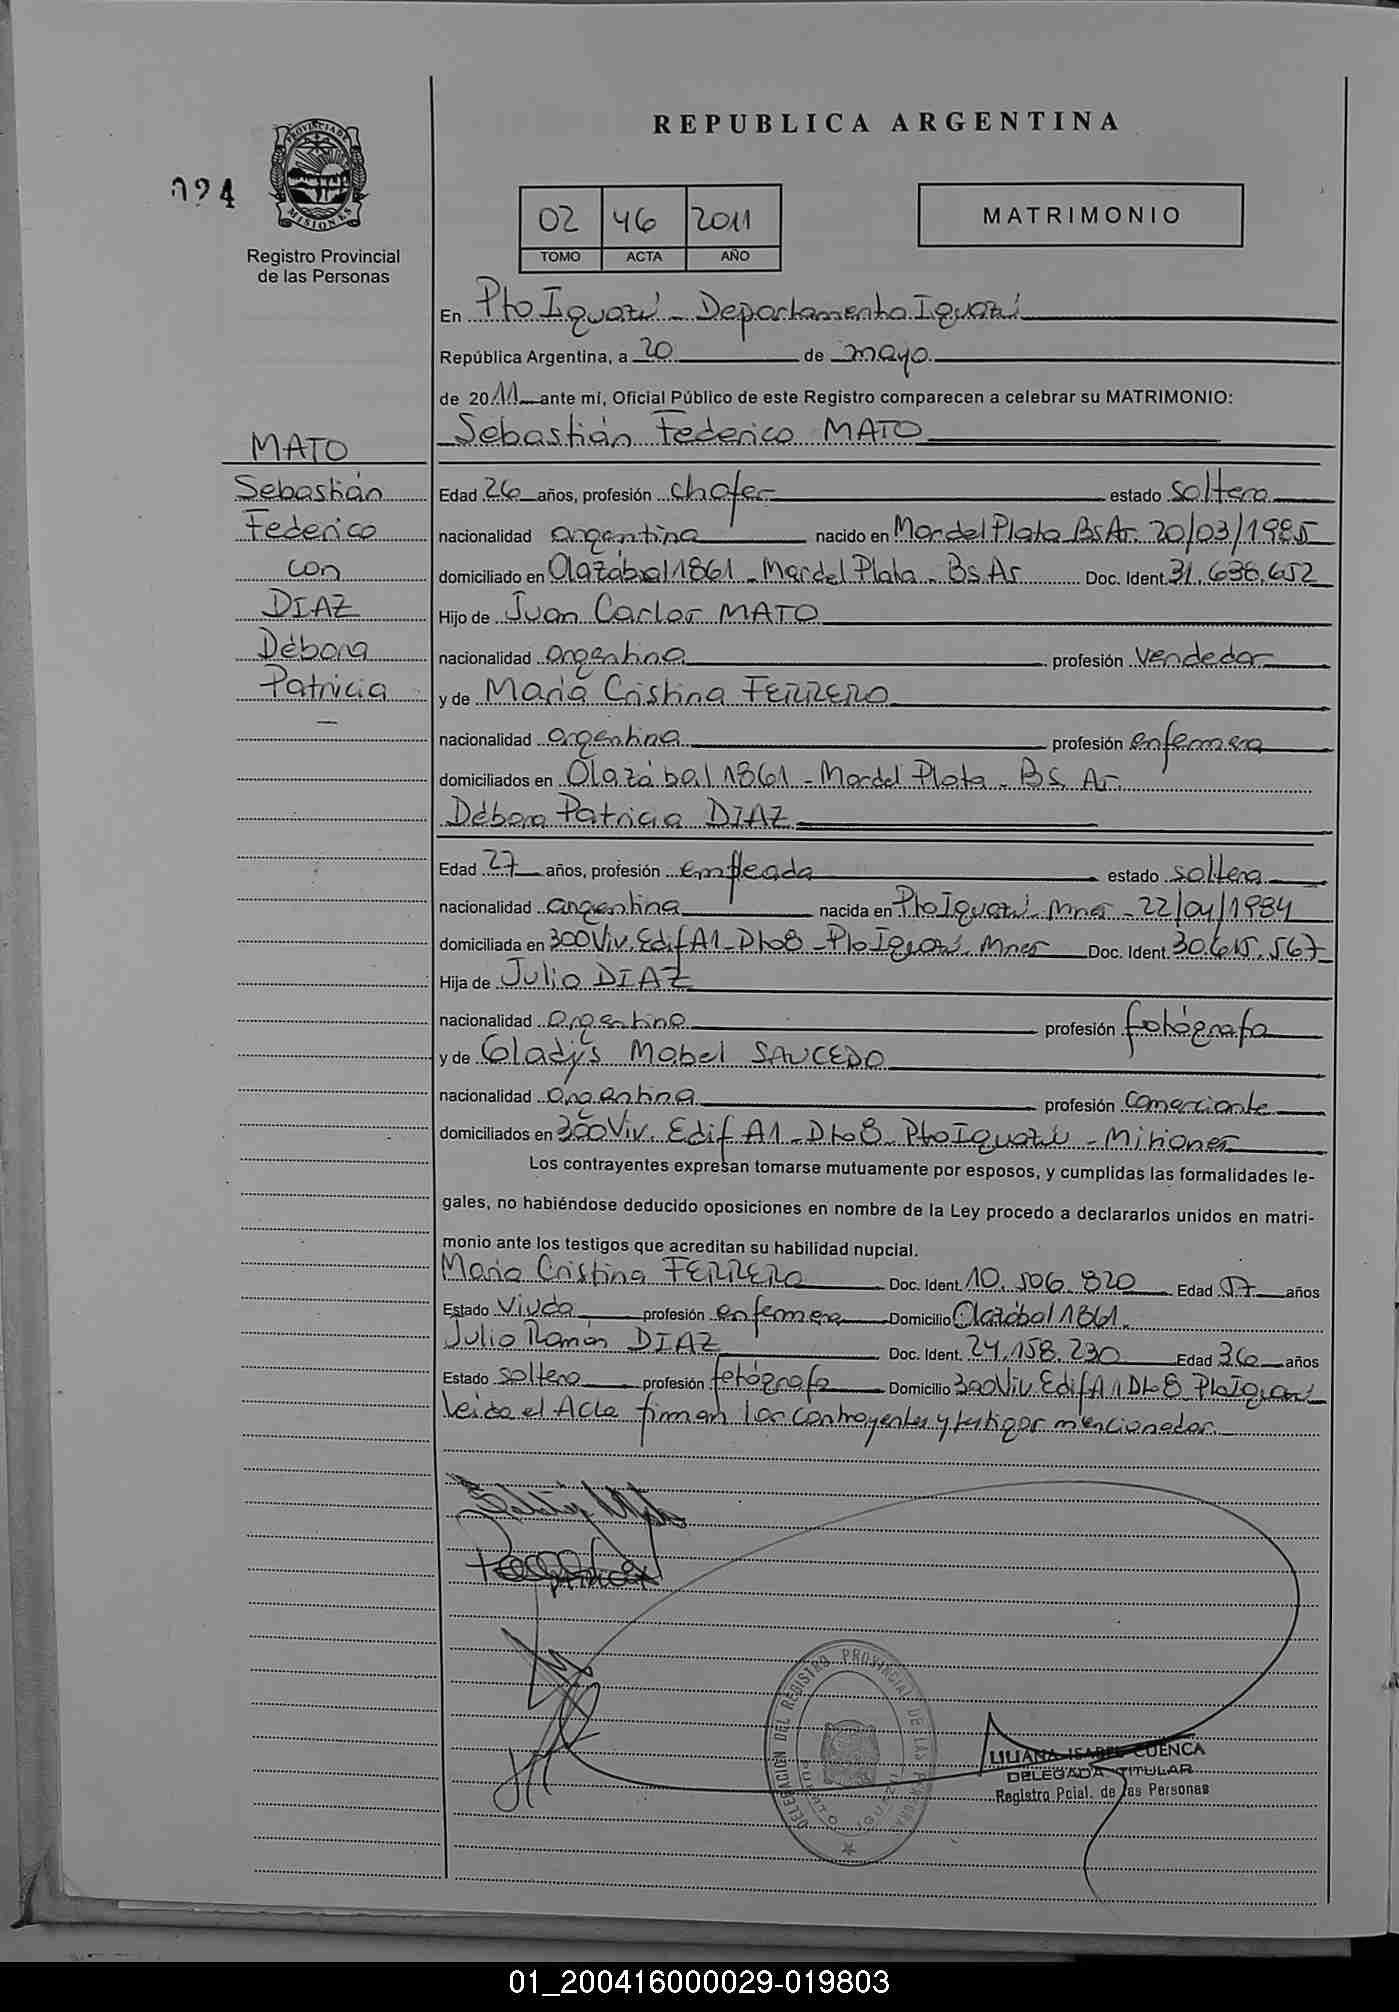 REPUBLICA ARGENTINA
024
PROVINCIA DE MISIONES
Registro Provincial
de las Personas
02 46 2011
TOMO ACTA AÑO
MATRIMONIO
En Pto Iguazú - Departamento Iguazú
República Argentina, a 20 de mayo
de 2011 ante mí, Oficial Público de este Registro comparecen a celebrar su MATRIMONIO:
Sebastián Federico MATO
MATO
Sebastián
Federico
con
DIAZ
Débora
Patricia
Edad 26 años, profesión chofer estado soltero
nacionalidad argentina nacido en Mar del Plata Bs Ar. 20/03/1985
domiciliado en Olazábal 1861 - Mar del Plata - Bs. As Doc. Ident. 31.638.652
Hijo de Juan Carlos MATO
nacionalidad argentina profesión vendedor
y de María Cristina FERRERO
nacionalidad argentina profesión enfermera
domiciliados en Olazábal 1861 - Mar del Plata - Bs Ar.
Débora Patricia DIAZ
Edad 27 años, profesión empleada estado soltera
nacionalidad argentina nacida en Pto Iguazú Mnes - 22/04/1984
domiciliada en 300 Viv. Edif A1 - Dto 8 - Pto Iguazú - Mnes Doc. Ident. 30.615.567
Hija de Julio DIAZ
nacionalidad argentina profesión fotógrafo
y de Gladys Mabel SAUCEDO
nacionalidad argentina profesión comerciante
domiciliados en 300 Viv. Edif A1 - Dto 8 Pto Iguazú - Misiones
Los contrayentes expresan tomarse mutuamente por esposos, y cumplidas las formalidades le-
gales, no habiéndose deducido oposiciones en nombre de la Ley procedo a declararlos unidos en matri-
monio ante los testigos que acreditan su habilidad nupcial.
María Cristina FERRERO Doc. Ident. 10.506.820 Edad 57 años
Estado Viuda profesión enfermera Domicilio Olazábal 1861.
Julio Ramón DIAZ Doc. Ident. 24.158.230 Edad 36 años
Estado soltero profesión fotógrafo Domicilio 300 Viv Edif A1 Dto 8 Pto Iguazú
Leída el Acta firman los contrayentes y testigos mencionados.
DELEGACION DEL REGISTRO PROVINCIAL DE LAS PERSONAS
PUERTO IGUAZU
LILIANA ISABEL CUENCA
DELEGADA TITULAR
Registro Pcial. de las Personas
01_200416000029-019803